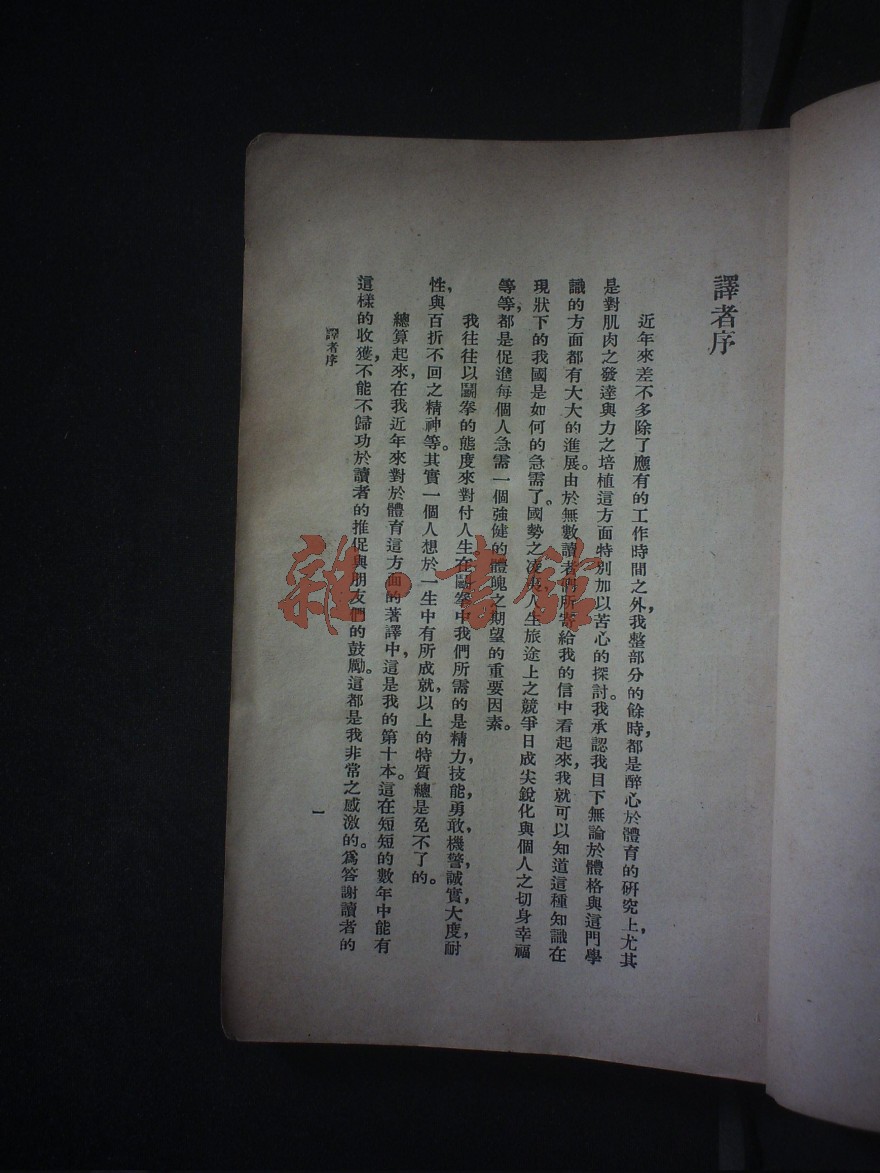 譯者序
近年來差不多除了應有的工作時間之外，我整部分的餘時，都是醉心於體育的研究上，尤其
是對肌肉之發達與力之培植這方面特別加以苦心的探討。我承認我目下無論於體格與這門學
識的方面都有大大的進展。由於無數讀者們所寄給我的信中看起來，我就可以知道這種知識在
現狀下的我國是如何的急需了。國勢之凌夷，人生旅途上之競爭日成尖銳化與個人之切身幸福
等等，都是促進每個人急需一個強健的體魄之期望的重要因素。
我往往以鬭拳的態度來對付人生，在鬭拳中我們所需的是精力，技能，勇敢，機警，誠實，大度，耐
性，與百折不回之精神等。其實一個人想於一生中有所成就，以上的特質總是免不了的。
總算起來，在我近年來對於體育這方面的著譯中，這是我的第十本。這在短短的數年中能有
這樣的收獲，不能不歸功於讀者的推促與朋友們的鼓勵。這都是我非常之感激的。爲答謝讀者的
譯者序
一
雜·書館